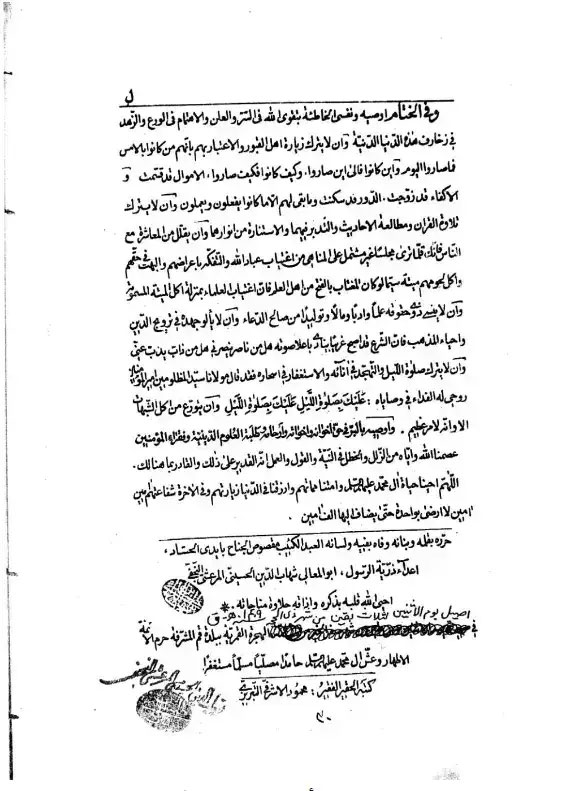 ل
وفي الختام اوصيه ونفسي الخاطئة بتقوى الله في السر والعلن والاهتمام في الورع والزهد
في زخارف هذه الدنيا الدنية وان لا يترك زيارة اهل القبور والاعتبار بهم بانهم من كانوا بالامس
فما صاروا اليوم واين كانوا فالى اين صاروا. وكيف كانوا فكيف صاروا، الاموال قد قسمت و
الاكفاء قد زوجت. الدور قد سكنت وما بقى لهم الا ما كانوا يفعلون ويعملون وان لا يترك
تلاوة القران ومطالعة الاحاديث والتدبر فيهما والاستنارة من انوارهما وان يقلل من المعاشرة مع
الناس فانك قلما ترى مجلسا غير مشتمل على المناهي من اغتياب عباد الله والتفكه باعراضهم والبهت في حقهم
واكل لحومهم ميتة سيما لو كان المغتاب بالفتح من اهل العلم فان اغتياب العلماء بمنزلة اكل الميتة المسمومة
وان لا ينسى ذوي حقوقه علما وادبا ومالا وتوليدا من صالح الدعاء وان لا يألو جهده في ترويج الدين
واحياء المذهب فان الشرع قد اصبح غريبا ينادي باعلا صوته هل من ناصر ينصرني هل من ذاب يذب عني
وان لا يترك صلوة الليل والتهجد في آنائه والاستغفار في اسحاره فقد قال مولانا سيد المظلومين امير المؤمنين
روحي له الفداء في وصاياه: عَلَيْكَ بِصَلوةِ اللَّيْلِ عَلَيْكَ بِصَلوةِ اللَّيْلِ وان يتورع من اكل الشبهات
الا وانه لامر عظيم. واوصيه بالبر في حق اخوانه واخواته وارحامه وطلبة العلوم الدينية وفقراء المؤمنين
عصمنا الله واياه من الزلل والخطل في النية والقول والعمل انه القدير على ذلك والقادر بما هنالك.
اللهم احينا حياة ال محمد عليهم السلام وامتنا مماتهم وارزقنا في الدنيا زيارتهم وفي الاخرة شفاعتهم امين
امين لا ارضى بواحدة حتى يضاف اليها الف امين.
حرره بقلمه وبنانه وفاه بفيه ولسانه العبد الكئيب مقصوص الجناح بايدي الحساد،
اعداء ذرية الرسول، ابو المعالي شهاب الدين الحسيني المرعشي النجفي
احيى الله قلبه بذكره واذاقه حلاوة مناجاته.
اصيل يوم الاثنين لثلاث بقين من شهر ذي ١٤٠٩ هـ ق
في الهجرة القمرية ببلدة قم المشرفة حرم الائمة
الاطهار وعش ال محمد عليهم السلام حامدا مصليا مسلما مستغفرا
كتبه الحقير الفقير: محمود الاشرفي التبريزي
٣٠